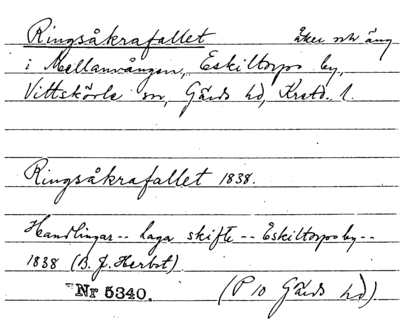 Ringsåkrafallet åker och äng
i Mellanvången, Eskiltorps by,
Vittskövle sn, Gärds hd, Krstd. l.
Ringsåkrafallet 1838.
Handlingar -- laga skifte -- Eskiltorps by --
1838 (B. J. Herbst)
Nr 5340. (P 10 Gärds hd).